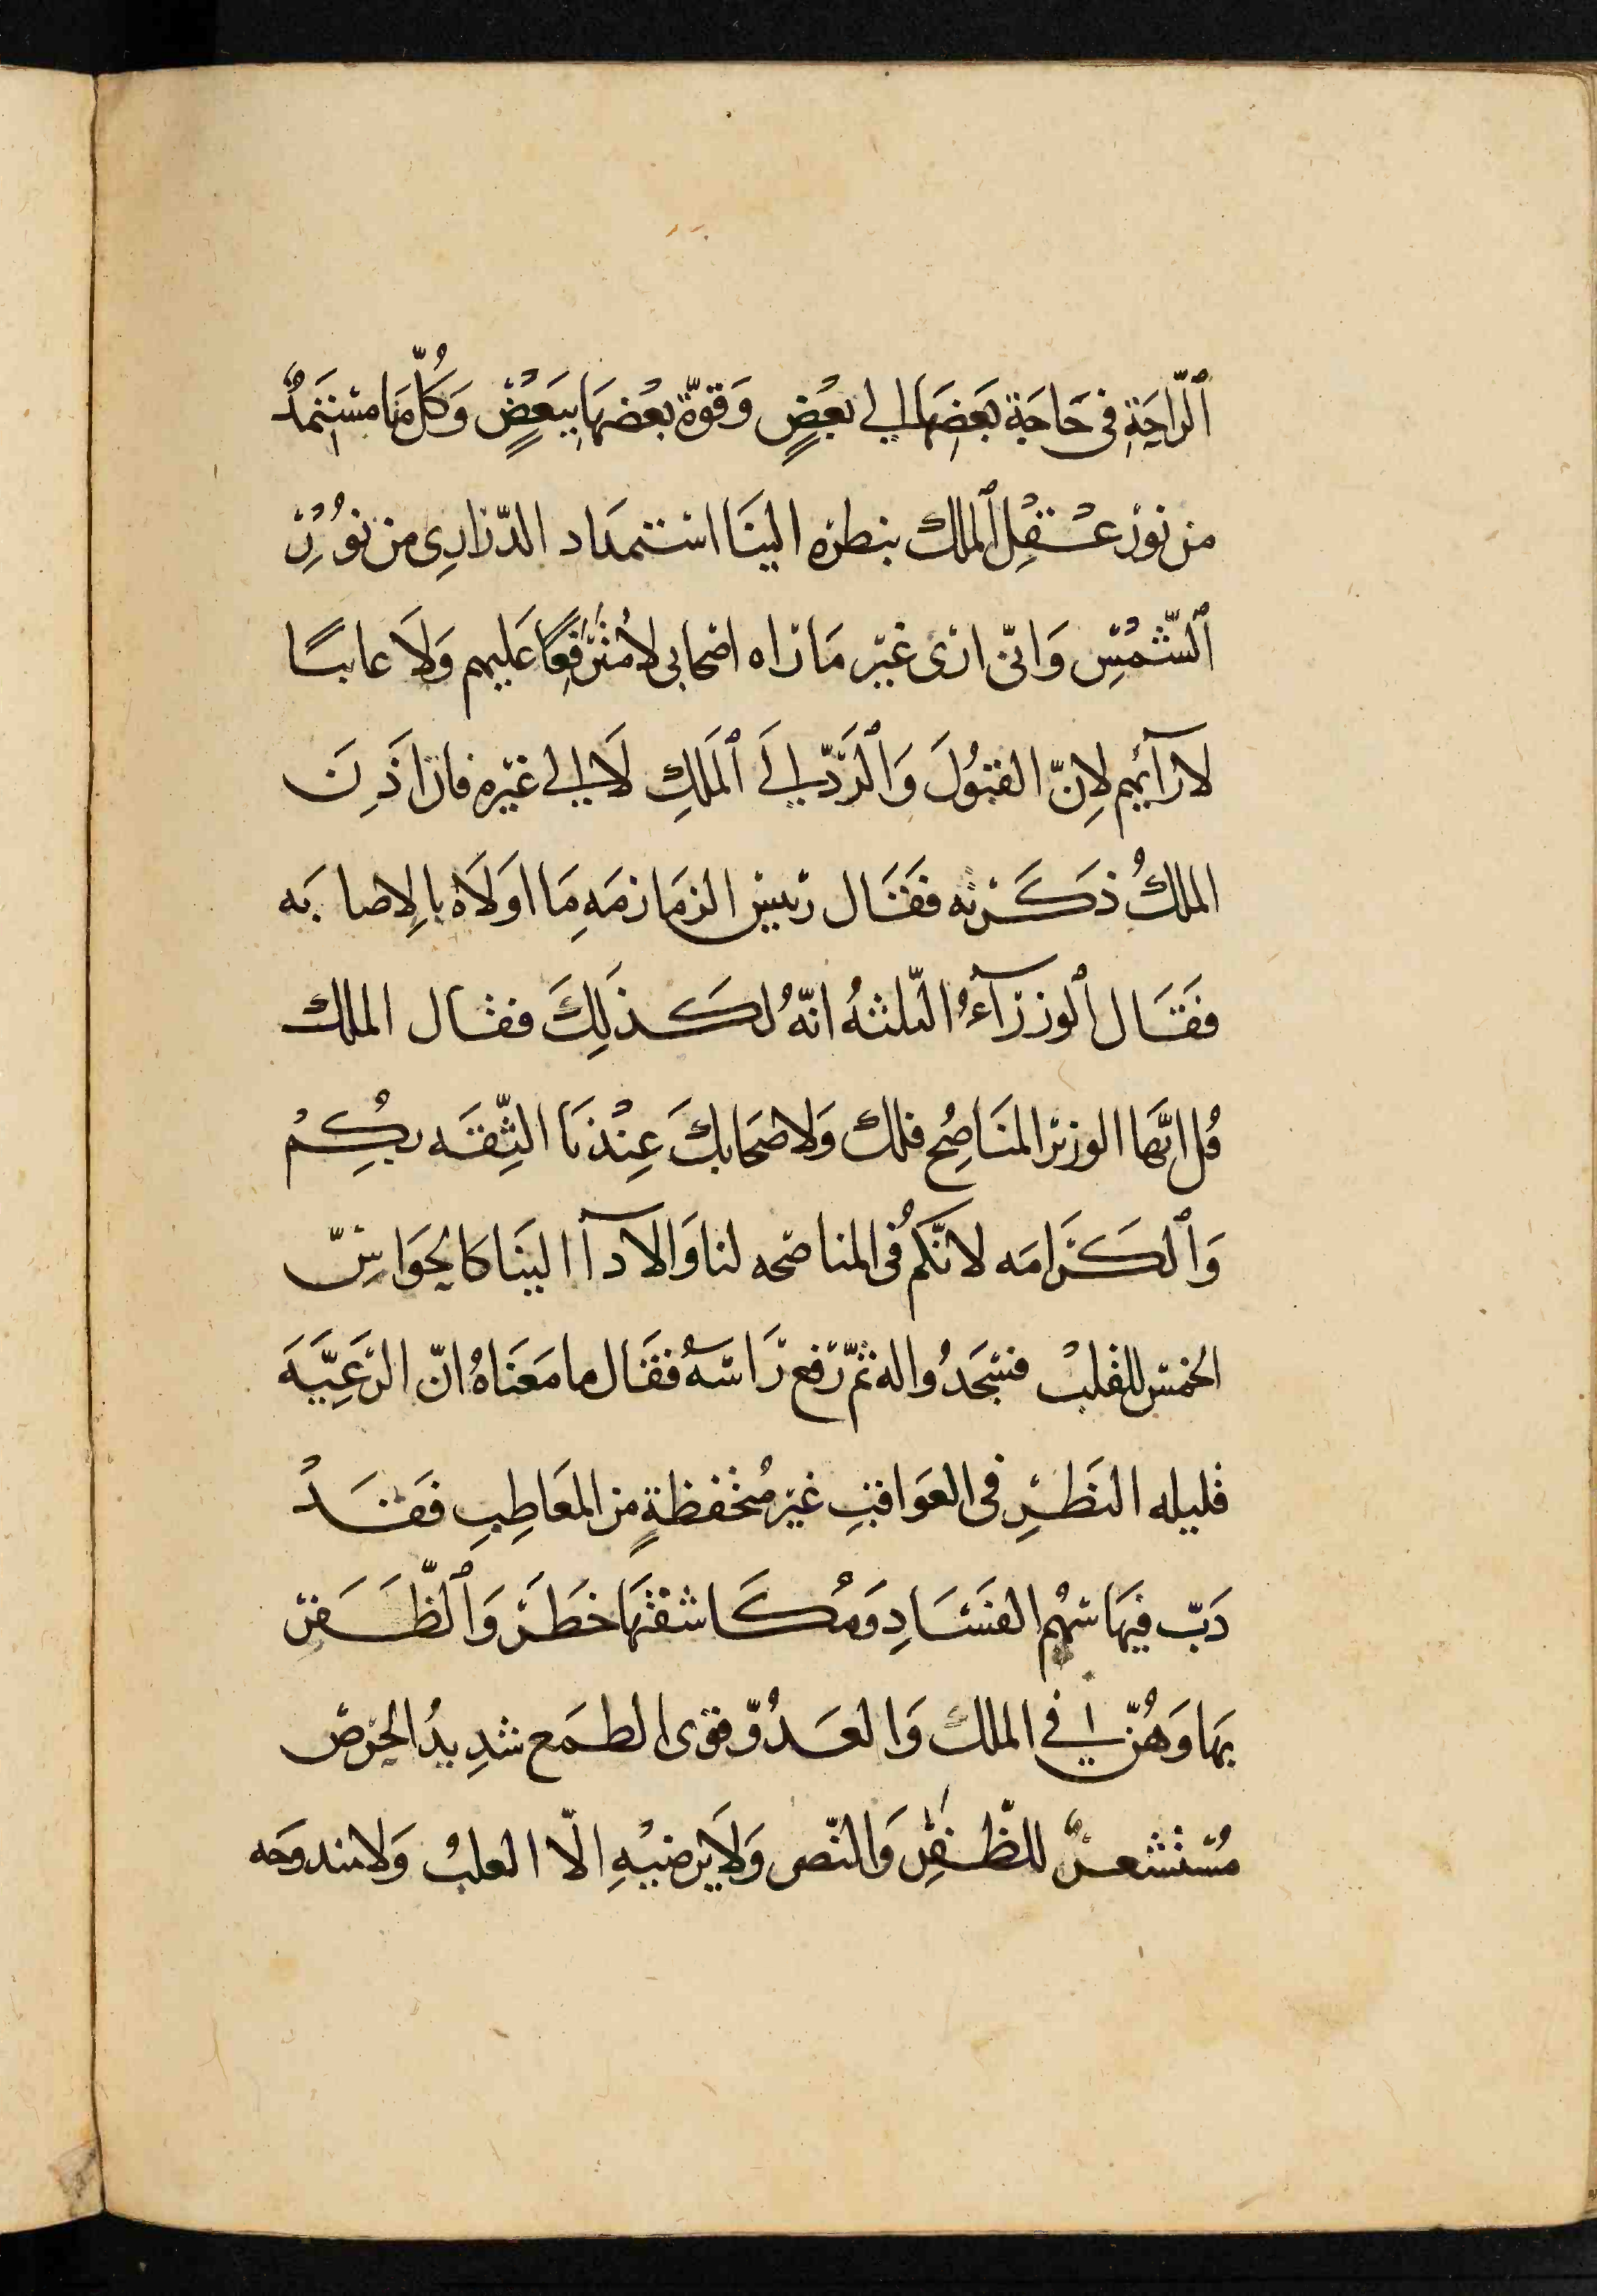 ٱلرّاحَةِ فى حَاجَة بَعَضِهَا الى بعُضٍ وَقوّة بعُضهَا ببَعُضٍ وَكُلّ مَنا مسْتَمَدٌّ
من نورْ عـقلِ ٱلملك بنطرِه الينَا استمدَاد الدّرارِى من نوُرِ
ٱلشّمُسِ وَانّى ارَى غيْر مَا رَاه اصْحابى لامُترَفِعًا عَليهم وَلَا عايبًا
لارآئهم لِانّ القبُولَ وَٱلرَدّ الَى ٱلمَلَكِ لَا الى غيْرِه فان اَذِنَ
الملكُ ذكَرْته فقَال رئيسْ الزمَازمَهِ مَا اوَلَاه بالِاصابَه
فَقَال ٱلوزرَآءُ الثلثهُ انّهُ لكـذلِكَ فقال الملك
قُل ايَّها الوزيْر المنَاصِحُ فلك وَلاصْحَابكَ عِنْدنَا الثِّقَه بكُمْ
وَٱلكَرَامَه لانّكُم فى المناصَحه لنا وَالادآ الينَا كالحوَاسّ
الخمْس للقلبْ فسْجَدُوا له ثمّ رَفع رَاسَهُ فقَال ما معَناهُ انّ الرَعِيَّهَ
قليله النَظَرِ فى العوَاقبِ غيْر مُتحْفظةٍ من المعَاطِبِ فَقَـدْ
دَبّ فيهَا سْهُم الفسَادِ وَمُكَاشفتهَا خطَر وَٱلظّفَر
بهَا وَهُنّ فى الملك وَالعَدُوّ قوى الطمَع شدِيدُ الحرْصْ
مُسْتشعرٌ للظّفِر وَالنّصر وَلَا يرضيْهِ الّا الغلبْ وَلامندوحَه